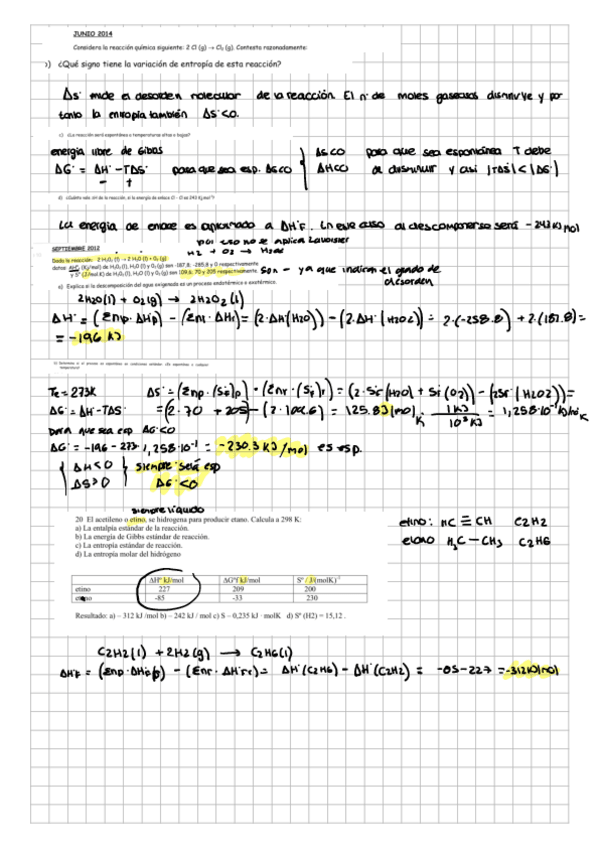 JUNIO 2014
Considera la reacción química siguiente: 2 Cl (g) → Cl₂ (g). Contesta razonadamente:
¿Qué signo tiene la variación de entropía de esta reacción?
ΔS° mide el desorden molecular de la reacción. El n° de moles gaseosos disminuye y por
tanto la entropía también ΔS°<0.
c) ¿La reacción será espontánea a temperaturas altas o bajas?
energía libre de Gibbs
ΔG° = ΔH° - TΔS° para que sea esp. ΔG<0
- +
ΔS<0
ΔH<0
para que sea espontánea T debe
disminuir y así |TΔS°| < |ΔS°|
La energía de enlace es ΔH°F. al descomponerse será -243 KJ/mol
por eso no se aplica Lavoisier
SEPTIEMBRE 2012
H2 + O2 →
Dada la reacción: 2 H₂O₂ (l) → 2 H₂O (l) + O₂ (g)
(KJ/mol) de H₂O₂ (l), H₂O (l) y O₂ (g) son -187,8; -285,8 y 0 respectivamente
y Sº (J/mol·K) de H₂O₂ (l), H₂O (l) y O₂ (g) son 109,6; 70 y 205 respectivamente.
son - ya que indican el grado de
desorden
a) Explica si la descomposición del agua oxigenada es un proceso endotérmico o exotérmico.
2H2O(l) + O2(g) → 2H2O2(l)
ΔH° = (Σnp·ΔHp) - (Σnr·ΔHr) = (2·ΔH°(H2O)) - (2·ΔH°(H2O2)) = 2·(-258.8) + 2·(187.8) =
= -196 KJ
Te = 273K ΔS° = (Σnp·(S°)p) - (Σnr·(S°)r) = (2·S°(H2O) + S°(O2)) - (2S°(H2O2)) =
ΔG° = ΔH° - TΔS° = (2·70 + 205) - (2·109.6) = 125.8 J/mol K · 1KJ / 10³ KJ = 1,258·10⁻¹ KJ/mol K
para que sea esp ΔG<0
ΔG° = -196 - 273·1,258·10⁻¹ = -230.3 KJ/mol es esp.
ΔH<0
ΔS>0
siempre será esp
ΔG°<0
siempre líquido
20 El acetileno o etino, se hidrogena para producir etano. Calcula a 298 K:
a) La entalpía estándar de la reacción.
b) La energía de Gibbs estándar de reacción.
c) La entropía estándar de reacción.
d) La entropía molar del hidrógeno
etino: HC ≡ CH C2H2
etano H3C - CH3 C2H6
ΔHº kJ/mol ΔGºf kJ/mol Sº / J/(molK)⁻¹
etino 227 209 200
etano -85 -33 230
Resultado: a) – 312 kJ /mol b) – 242 kJ / mol c) S – 0,235 kJ · molK d) Sº (H2) = 15,12 .
C2H2(l) + 2H2(g) → C2H6(l)
ΔH°F = (Σnp·ΔH°p) - (Σnr·ΔH°r) = ΔH°(C2H6) - ΔH°(C2H2) = -85-227 = -312KJ/mol